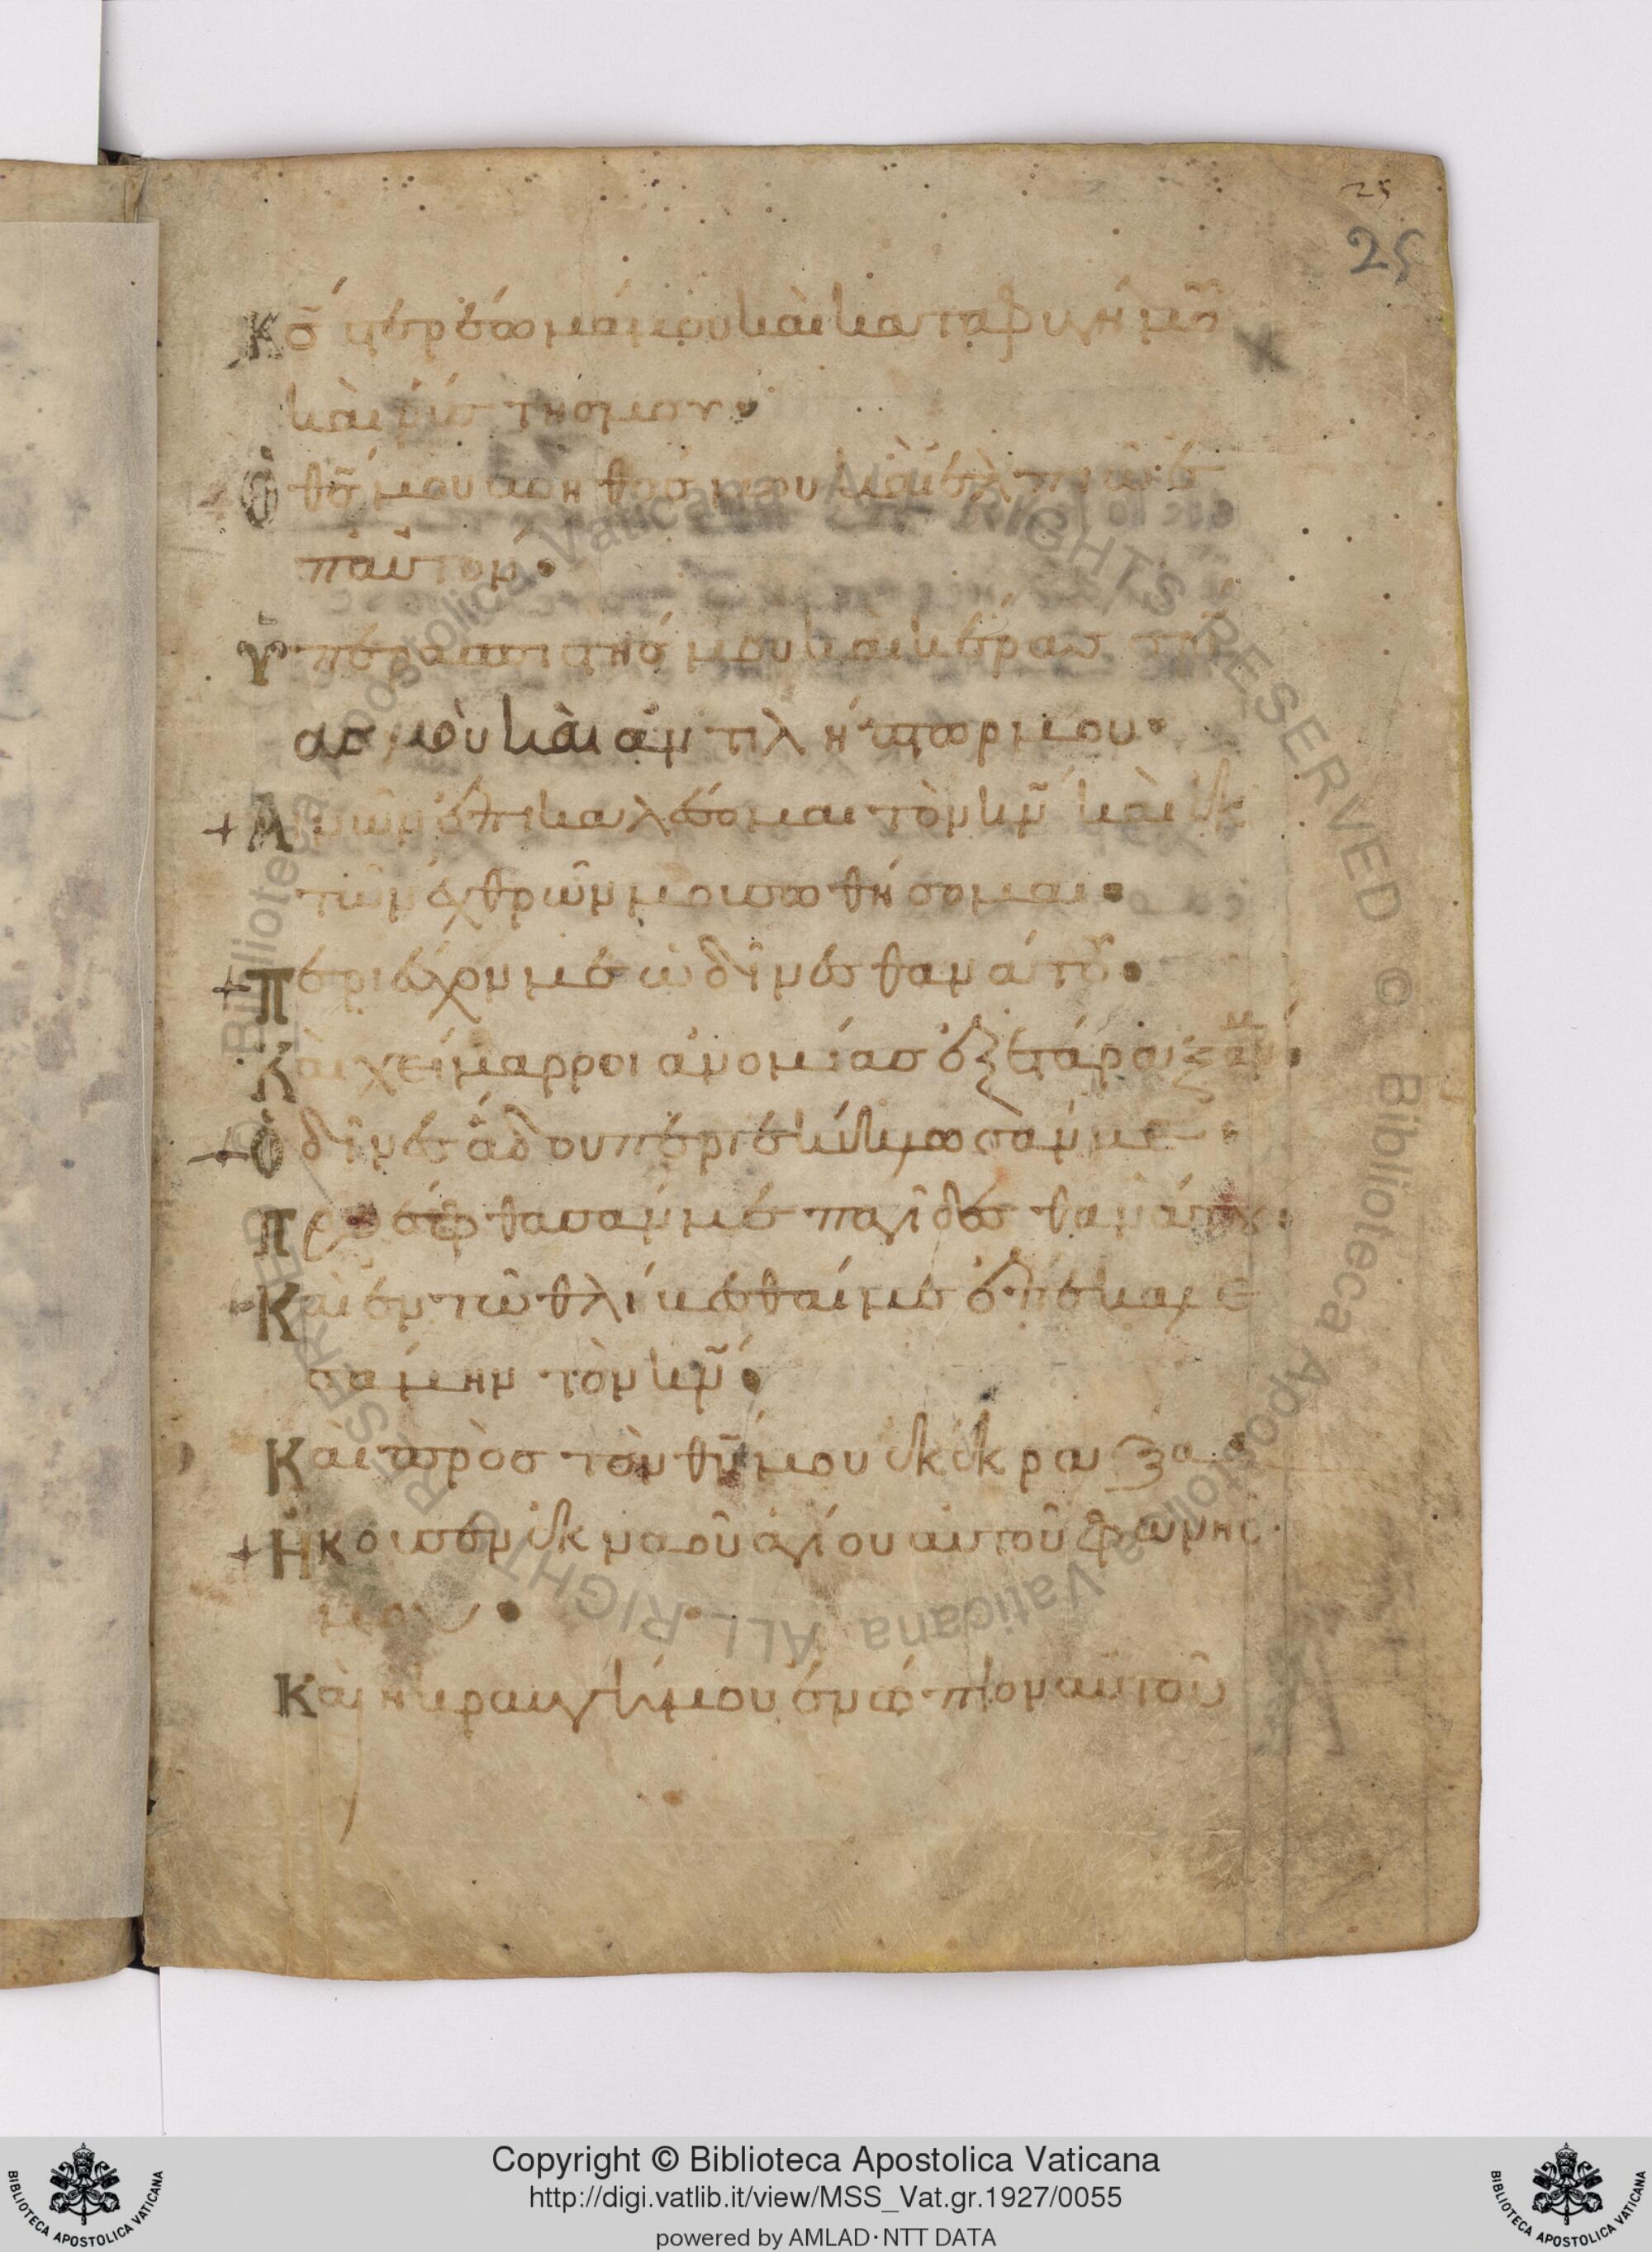 25
25
Κσ̄ στερέωμά μου καὶ καταφυγή μου
καὶ ρύστησ μου·
Ὁ θσ̄ μου βοηθόσ μου καὶ ἐλπιῶ ἐ
π αὐτόν·
Ὑπερασπιστήσ μου καὶ κέρασ σωτηρί
ασ μου καὶ ἀντιλήπτωρ μου·
+ Αἰνῶν ἐπικαλέσομαι τὸν κν̄ καὶ ἐκ
τῶν ἐχθρῶν μου σωθήσομαι·
+ Περιέσχον με ὠδῖνεσ θανάτου·
Καὶ χείμαρροι ἀνομίασ ἐξετάραξάν με·
+ Ὠδῖνεσ ἅδου περιεκύκλωσάν με·
Προέφθασάν με παγίδεσ θανάτου·
Καὶ ἐν τῶ θλίβεσθαί με ἐπεκαλε
σάμην τὸν κν̄·
Καὶ πρὸσ τὸν θν̄ μου ἐκέκραξα·
+ Ἤκουσεν ἐκ ναοῦ ἁγίου αὐτοῦ φωνῆσ
μου·
Καὶ ἡ κραυγή μου ἐνώπιον αὐτοῦ
Copyright © Biblioteca Apostolica Vaticana
http://digi.vatlib.it/view/MSS_Vat.gr.1927/0055
powered by AMLAD·NTT DATA
BIBLIOTECA APOSTOLICA VATICANA
BIBLIOTECA APOSTOLICA VATICANA
Biblioteca Apostolica Vaticana ALL RIGHTS RESERVED © Biblioteca Apostolica Vaticana ALL RIGHTS RESERVED ©